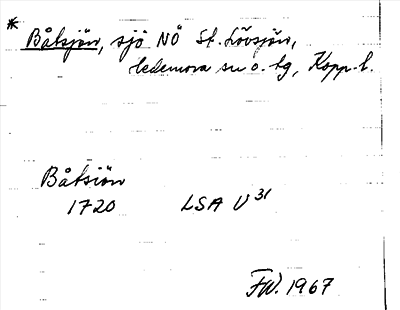 * Båtsjön, sjö NÖ St. Lövsjön,
Hedemora sn o. tg, Kopp. l.
Båtsiön
1720 LSA U 31
FW. 1967